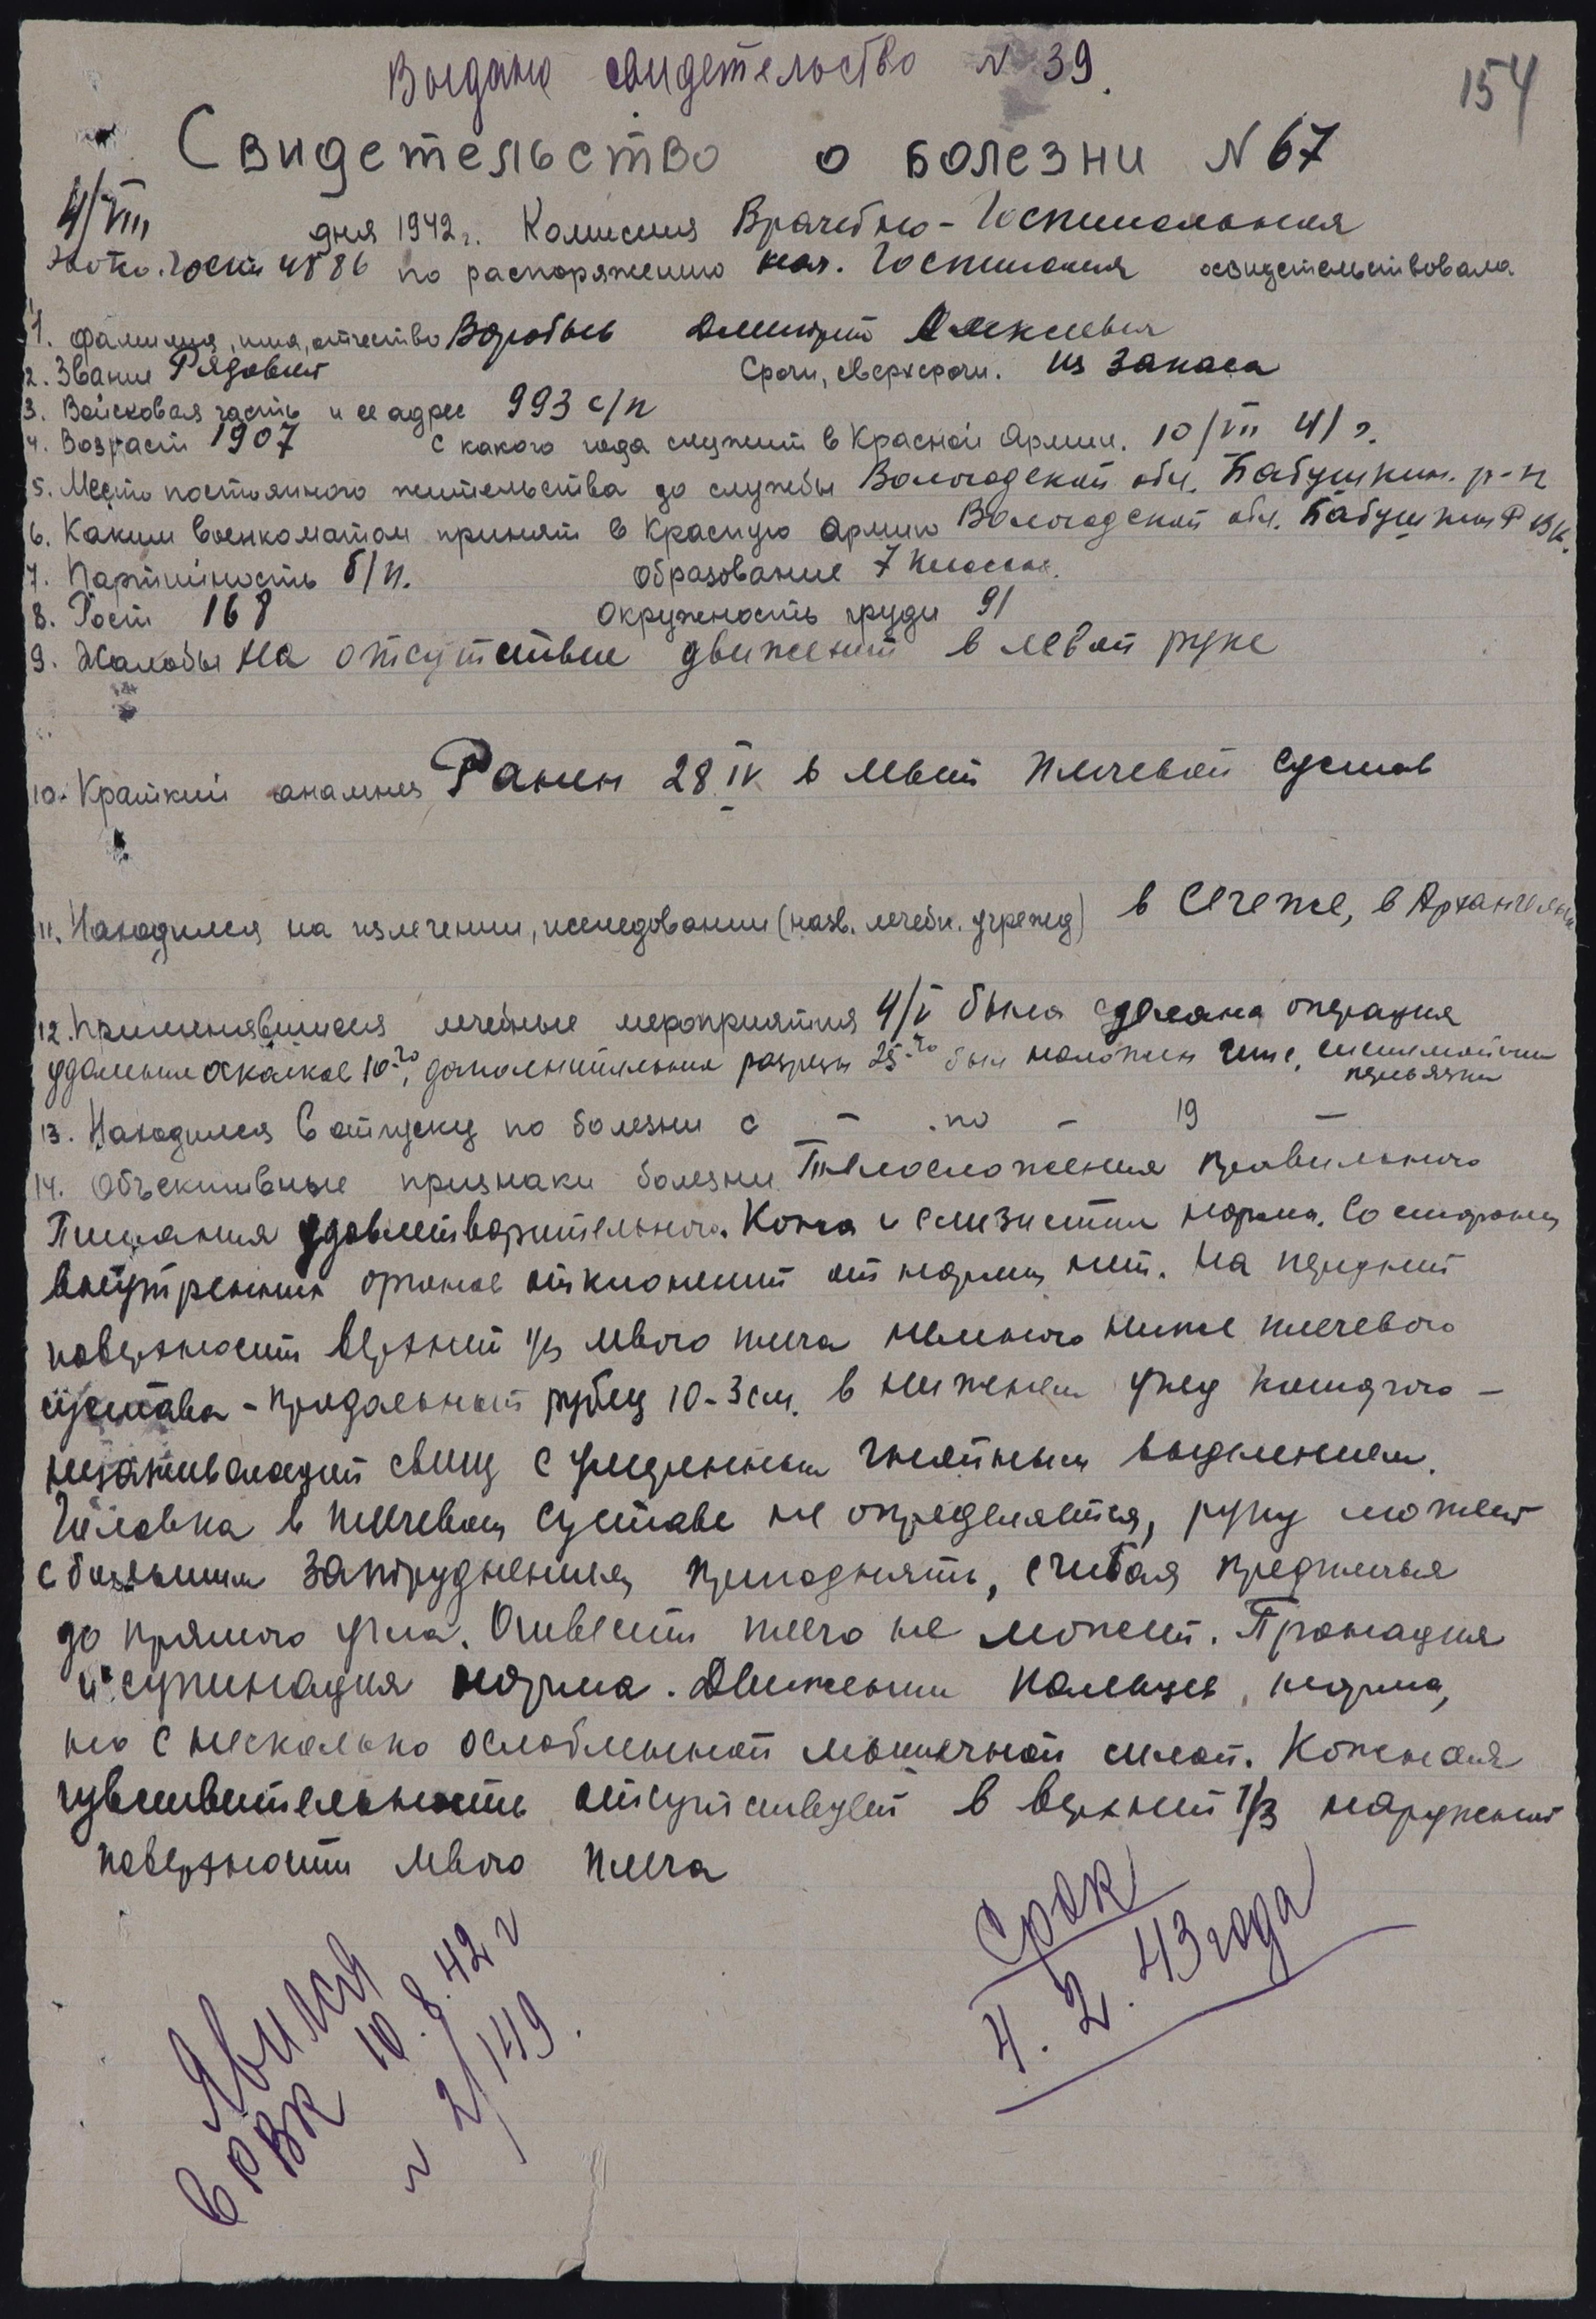 Выдано свидетельство N 39.
154
Свидетельство о болезни N 67
4/VIII дня 1942 г. Комиссия Врачебно-Госпитальная
госп 4886 по распоряжению нач. Госпиталя освидетельствовала
1. Фамилия, имя, отчество Воробьев Дмитрий Алексеевич
2. Звание Рядовой Срочн, сверхсрочн. из запаса
3. Войсковая часть и ее адрес 993 с/п
4. Возраст 1907 с какого года служит в Красной Армии. 10/VII 41 г.
5. Место постоянного жительства до службы Вологодской обл. Бабушкин. р-н
6. Каким военкоматом принят в Красную Армию Вологодской обл. Бабушкин РВК.
7. Партийность б/п. Образование 7 классов.
8. Рост 168 Окружность груди 91
9. Жалобы на отсутствие движений в левой руке
10. Краткий анамнез Ранен 28 IV в левый плечевой сустав
11. Находился на излечении, исследовании (назв. лечебн. учрежд) в Сегеже, в Архангельске
12. Применявшиеся лечебные мероприятия 4/V была сделана операция
удаление осколков 10-го, дополнительные разрезы 25-го был наложен гипс, систематич
перевязки
13. Находился в отпуску по болезни с – . по – 19 –
14. Объективные признаки болезни Телосложения правильного
Питания удовлетворительного. Кожа и слизистые норма. Со стороны
внутренних органов отклонений от нормы нет. На передней
поверхности верхней 1/3 левого плеча немного ниже плечевого
сустава - продольный рубец 10-3 см. в нижнем углу которого -
незаживающий свищ с умеренным гнойным выделением.
Головка в плечевом суставе не определяется, руку может
с большим затруднением приподнять, сгибая предплечья
до прямого угла. Отвести плечо не может. Пронация
и супинация норма. Движении пальцев, норма,
но с несколько ослабленной мышечной силой. Кожная
чувствительность отсутствует в верхней 1/3 наружной
поверхности левого плеча
Срок
4. 2. 43 года
Явился
в РВК 10.8.42 г
N 2/149.